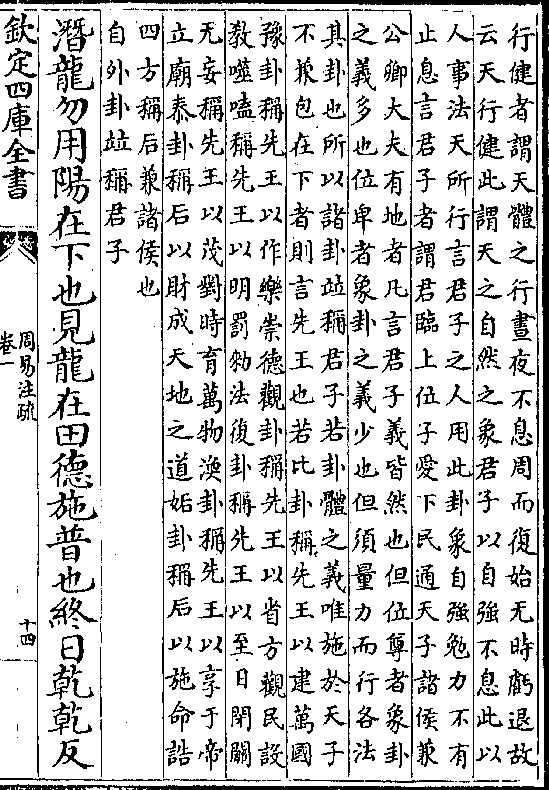 行健者謂天體之行晝夜不息周而復始无時虧退故
云天行健此謂天之自然之象君子以自強不息此以
人事法天所行言君子之人用此卦象自強勉力不有
止息言君子者謂君臨上位子愛下民通天子諸侯兼
公卿大夫有地者凡言君子義皆然也但位尊者象卦
之義多也位卑者象卦之義少也但須量力而行各法
其卦也所以諸卦竝稱君子若卦體之義唯施於天子
不兼包在下者則言先王也若比卦稱先王以建萬國
豫卦稱先王以作樂崇德觀卦稱先王以省方觀民設
敎噬嗑稱先王以明罰勑法復卦稱先王以至日閉關
无妄稱先王以茂對時育萬物渙卦稱先王以享于帝
立廟泰卦稱后以財成天地之道姤卦稱后以施命誥
四方稱后兼諸侯也
自外卦竝稱君子
潛龍勿用陽在下也見龍在田德施普也終日乾乾反
欽定四庫全書
周易注疏
卷一
十四